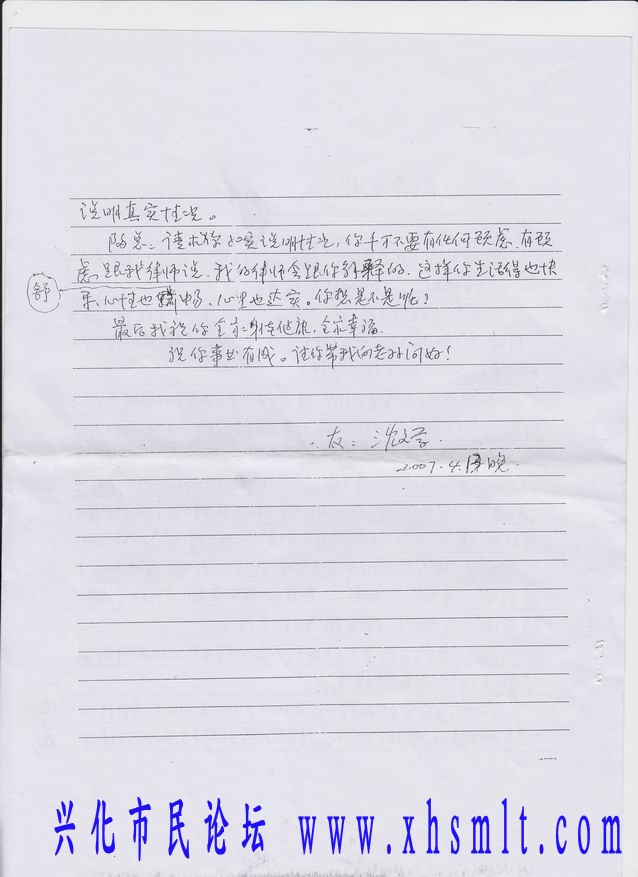 说明真实情况。
陆总：请求你如实说明情况，你千万不要有任何顾虑，有顾
虑跟我律师说，我的律师会跟你解释的，这样你生活得也快
舒
乐，心情也畅，心里也达实。你想是不是呢？
最后我祝你全家身体健康，全家幸福
祝你事业有成。请你带我向老孙问好！
友：沈文学
2007.4. 晚.
兴化市民论坛 www.xhsmlt.com